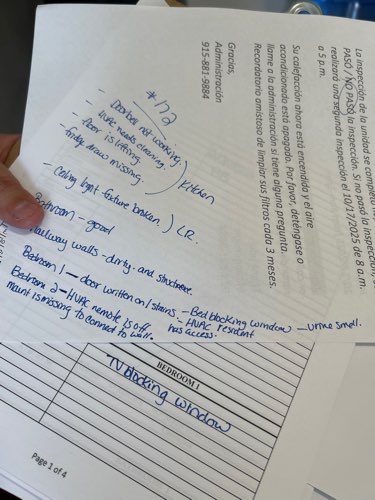 La inspección de la unidad se completó
PASÓ / NO PASÓ la inspección. Si no pasó la inspección,
realizará una segunda inspección el 10/17/2025 de 8 a.m.
a 5 p.m.
Su calefacción ahora está encendida y el aire
acondicionado está apagado. Por favor, deténgase o
llame a la administración si tiene alguna pregunta.
Recordatorio amistoso de limpiar sus filtros cada 3 meses.
Gracias,
Administración
915-881-9884
*172
- Doorbell not working
- HVAC needs cleaning
- floor is lifting
- fridge draw missing
) Kitchen
- Ceiling light fixture broken ) LR.
Bathroom 1 - good
Hallway walls - dirty and
Bedroom 1 - door written on / stains. - Bed blocking window - urine smell.
HVAC resident
has access.
Bedroom 2 - HVAC remote is off
mount is missing to connect to wall.
BEDROOM 1
TV blocking window
Page 1 of 4